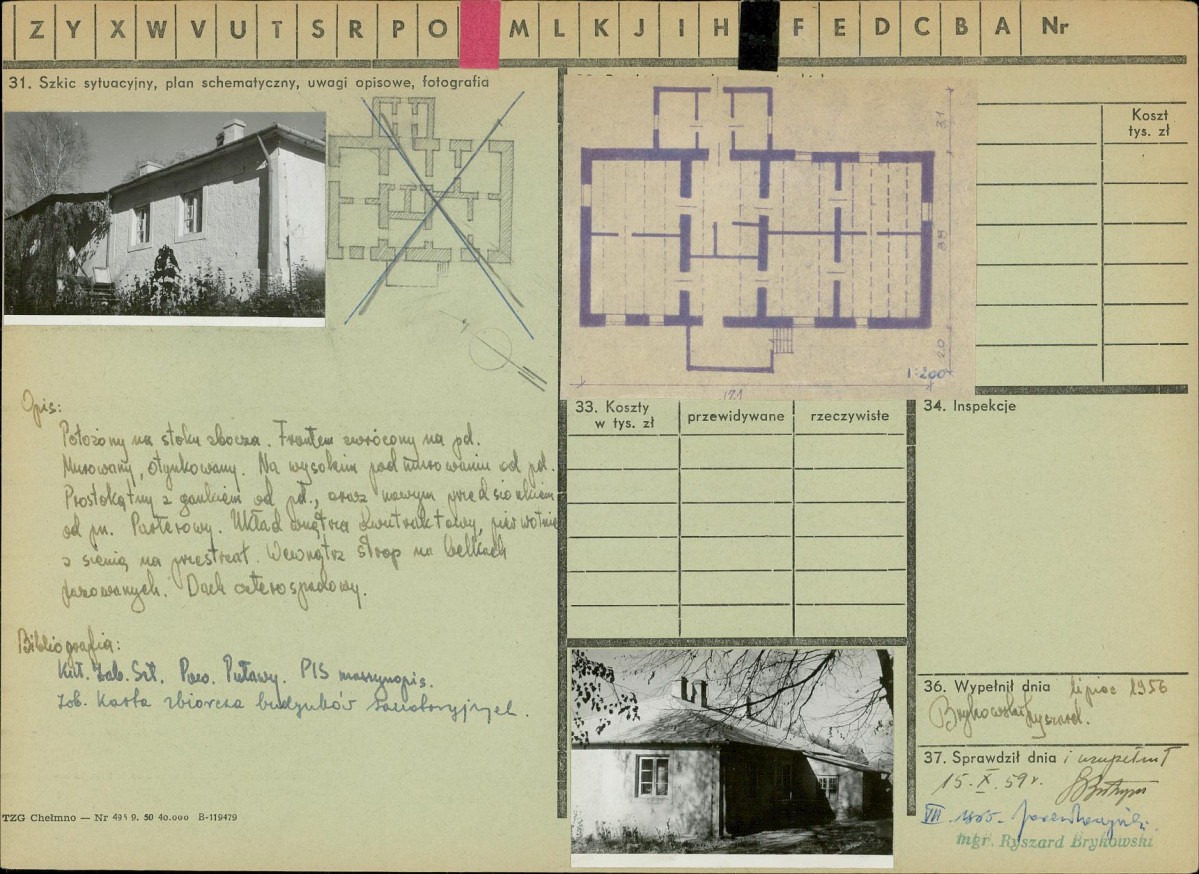 Z Y X W V U T S R P O M L K J I H F E D C B A Nr
31. Szkic sytuacyjny, plan schematyczny, uwagi opisowe, fotografia
Koszt
tys. zł
31
38
20
1:200
121
Opis:
Położony na stoku zbocza. Frontem zwrócony na pd.
Murowany, otynkowany. Na wysokim podmurowaniu od pd.
Prostokątny z gankiem od pd., oraz nowym przedsionkiem
od pn. Parterowy. Układ wnętrza dwutraktowy, pierwotnie
z sienią na przestrzał. Wewnątrz strop na belkach
fazowanych. Dach czterospadowy.
Bibliografia:
Kat. Zab. Szt. Pow. Puławy. PIS maszynopis.
Zob. Karta zbiorcza budynków sanatoryjnych.
TZG Chełmno — Nr 495 9. 50 40.000 B-119479
33. Koszty
w tys. zł
przewidywane
rzeczywiste
34. Inspekcje
36. Wypełnił dnia lipiec 1956
Brykowski Ryszard.
37. Sprawdził dnia i uzupełnił
15. X. 59 r.
VII.
mgr. Ryszard Brykowski